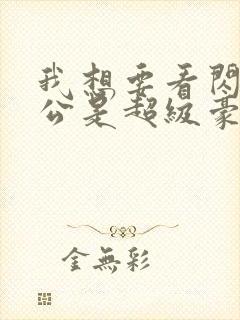 我想要看閃
公是超級豪
金無彩